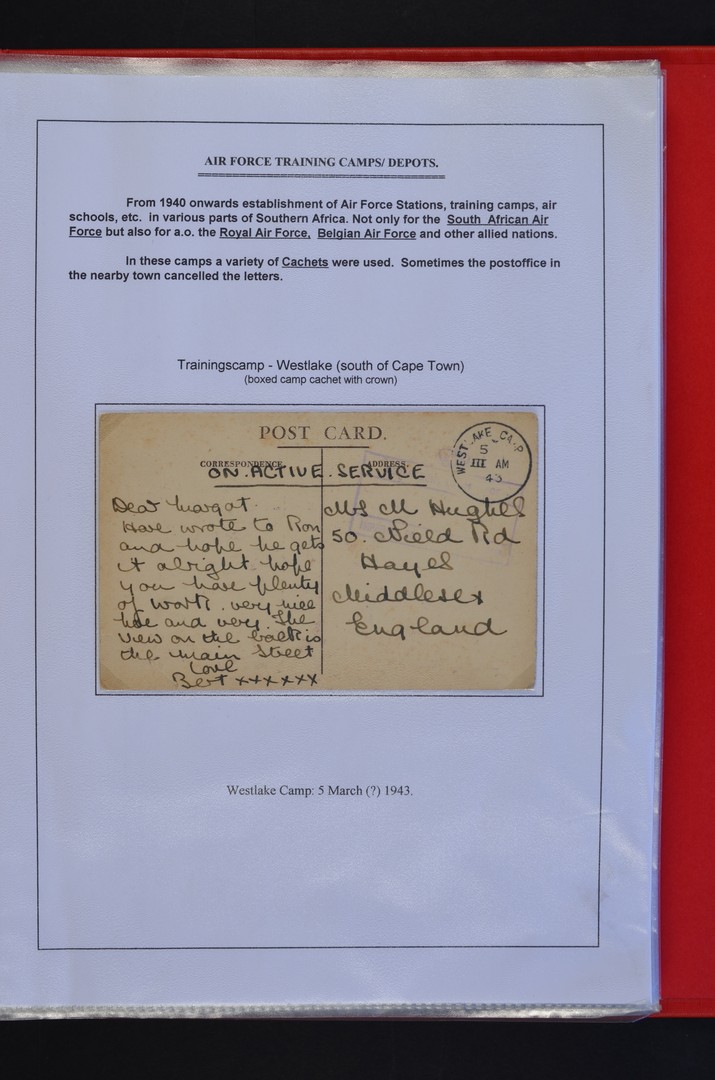 AIR FORCE TRAINING CAMPS/ DEPOTS.
From 1940 onwards establishment of Air Force Stations, training camps, air
schools, etc. in various parts of Southern Africa. Not only for the South African Air
Force but also for a.o. the Royal Air Force, Belgian Air Force and other allied nations.
In these camps a variety of Cachets were used. Sometimes the postoffice in
the nearby town cancelled the letters.
Trainingscamp - Westlake (south of Cape Town)
(boxed camp cachet with crown)
POST CARD.
CORRESPONDENCE
ADDRESS
ON ACTIVE SERVICE
WESTLAKE CAMP
5
III AM
43
Dear Margot.
Have wrote to Ron
and hope he gets
it alright hope
you have plenty
of work. very nice
here and very. The
view on the back is
the main Street
Love
Bert xxxxxx
Mrs M Hughes
50. Nield Rd
Hayes
Middlesex
England
Westlake Camp: 5 March (?) 1943.